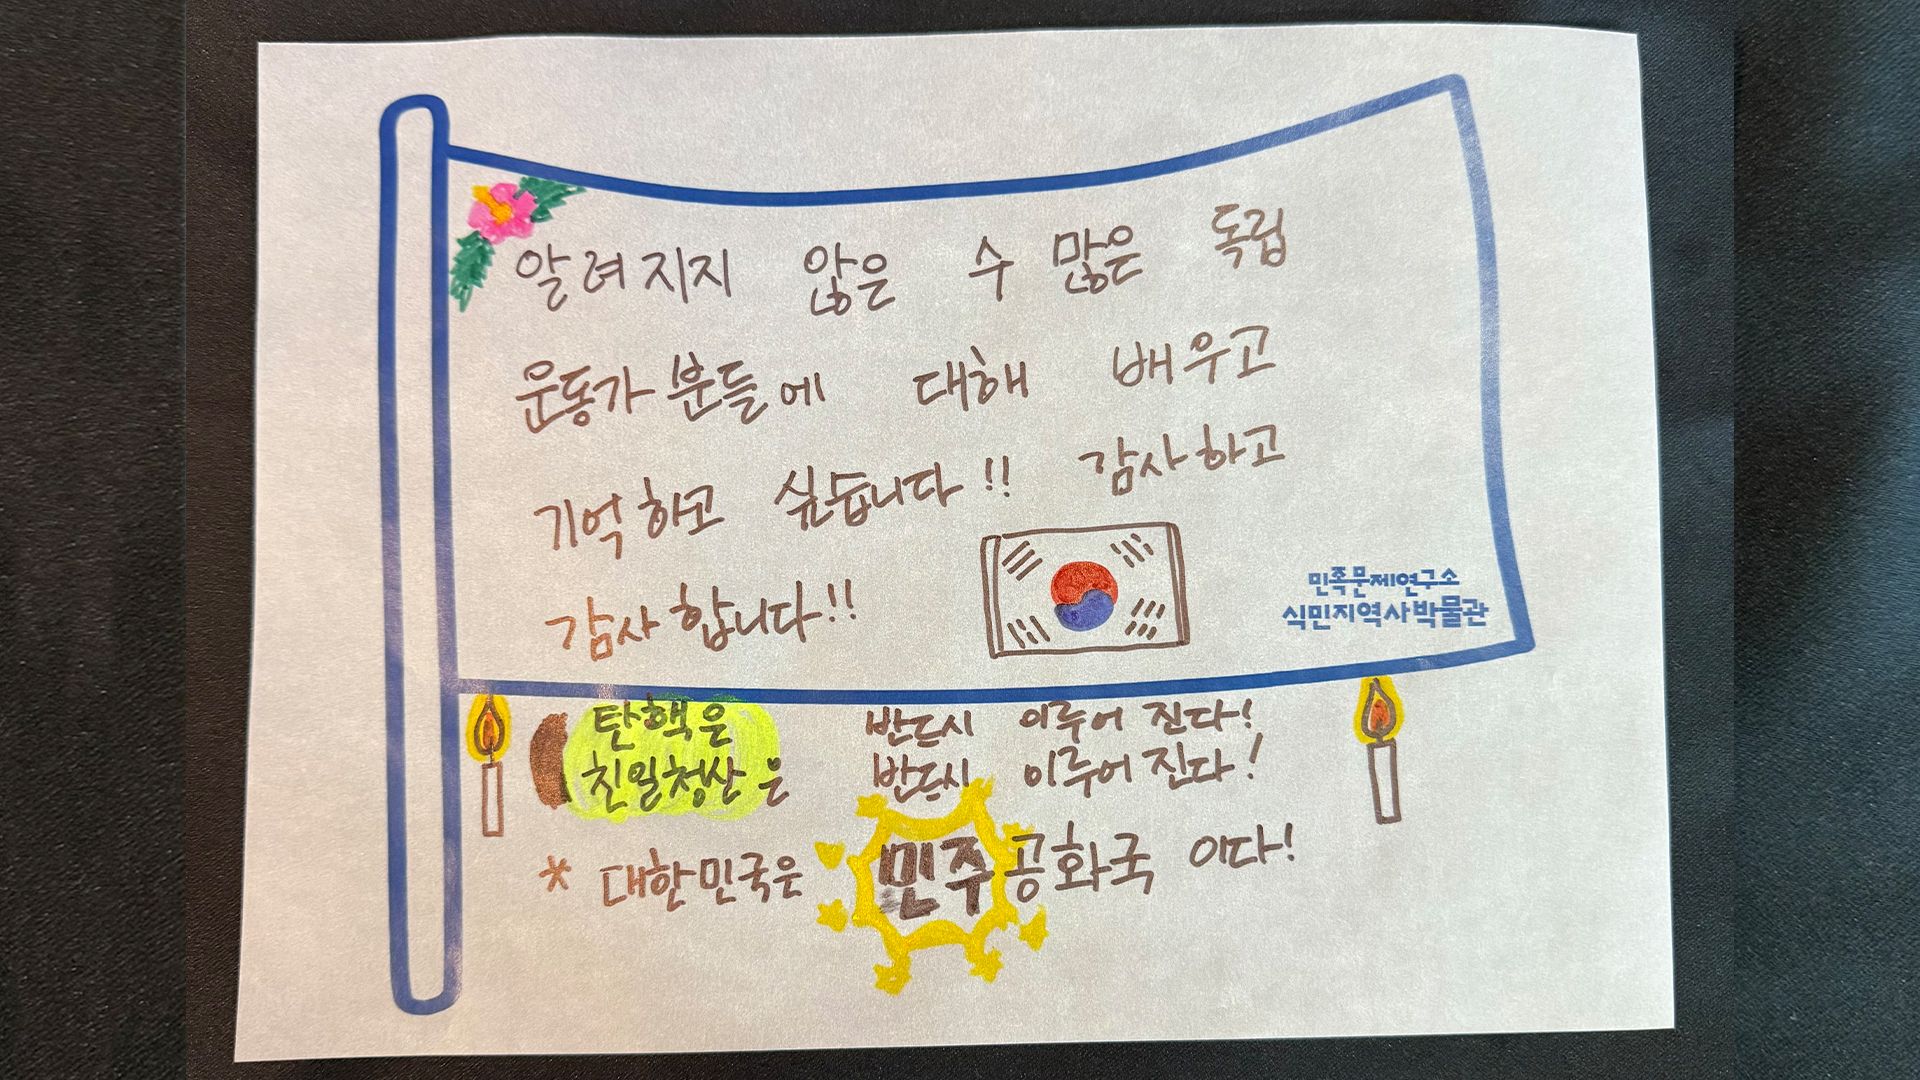 알려지지 않은 수 많은 독립
운동가 분들에 대해 배우고
기억하고 싶습니다!! 감사하고
감사합니다!!
민족문제연구소
식민지역사박물관
탄핵은 반드시 이루어 진다!
친일청산은 반드시 이루어 진다!
* 대한민국은 민주공화국 이다!